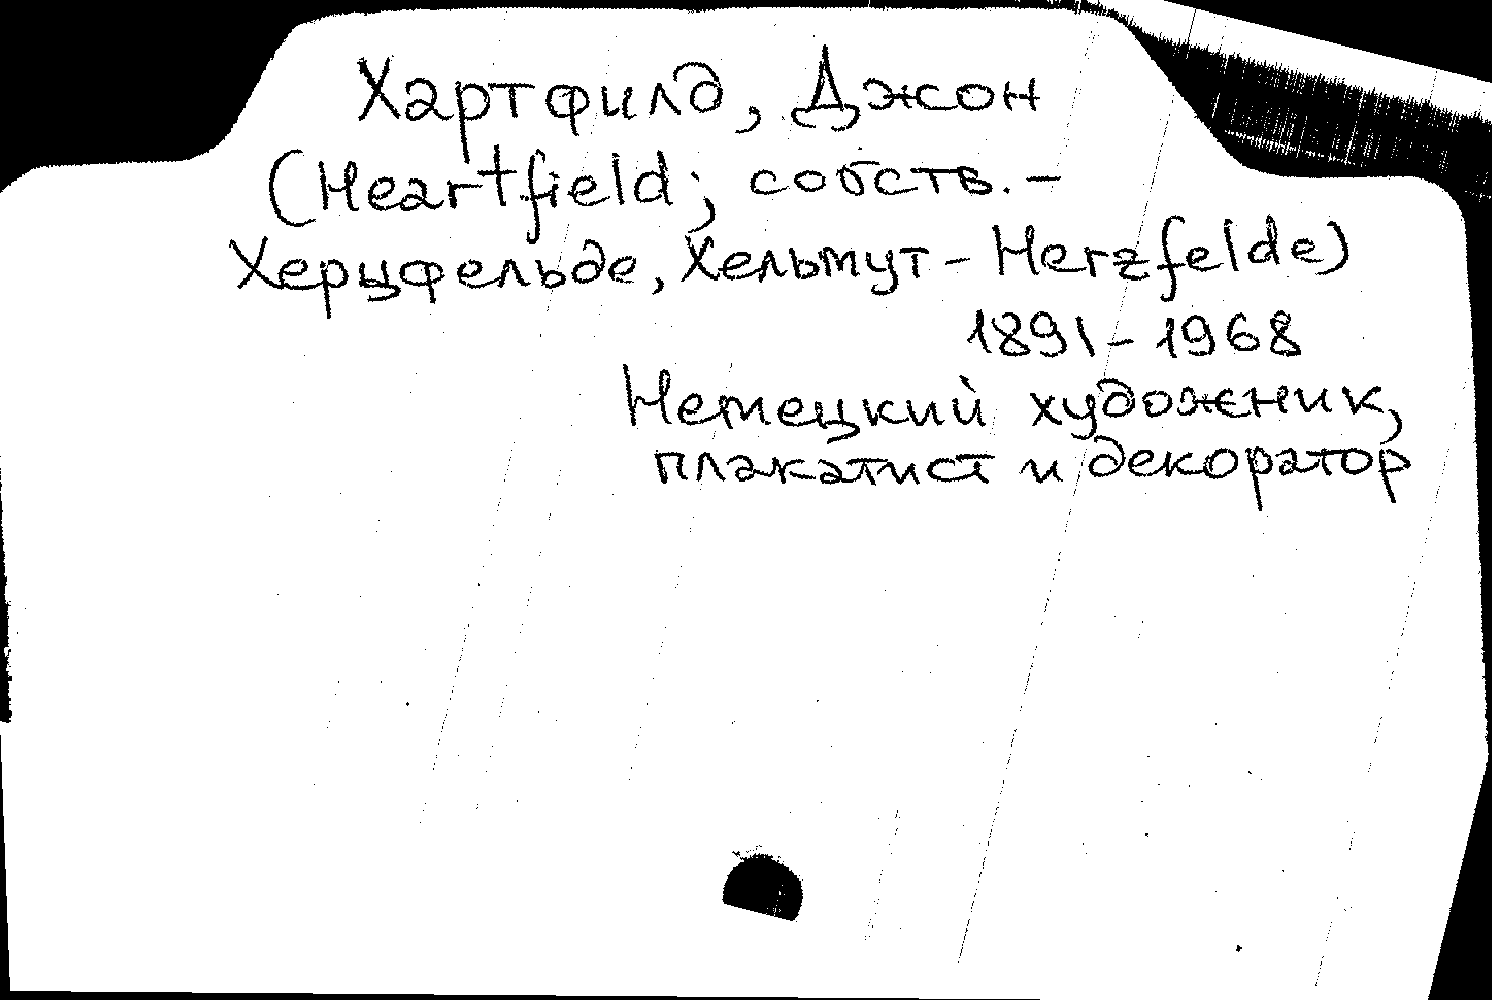 Хартфилд, Джон
(Heartfield; собств. -
Херцфельде, Хельмут - Herzfelde)
1891 - 1968
Немецкий художник,
плакатист и декоратор